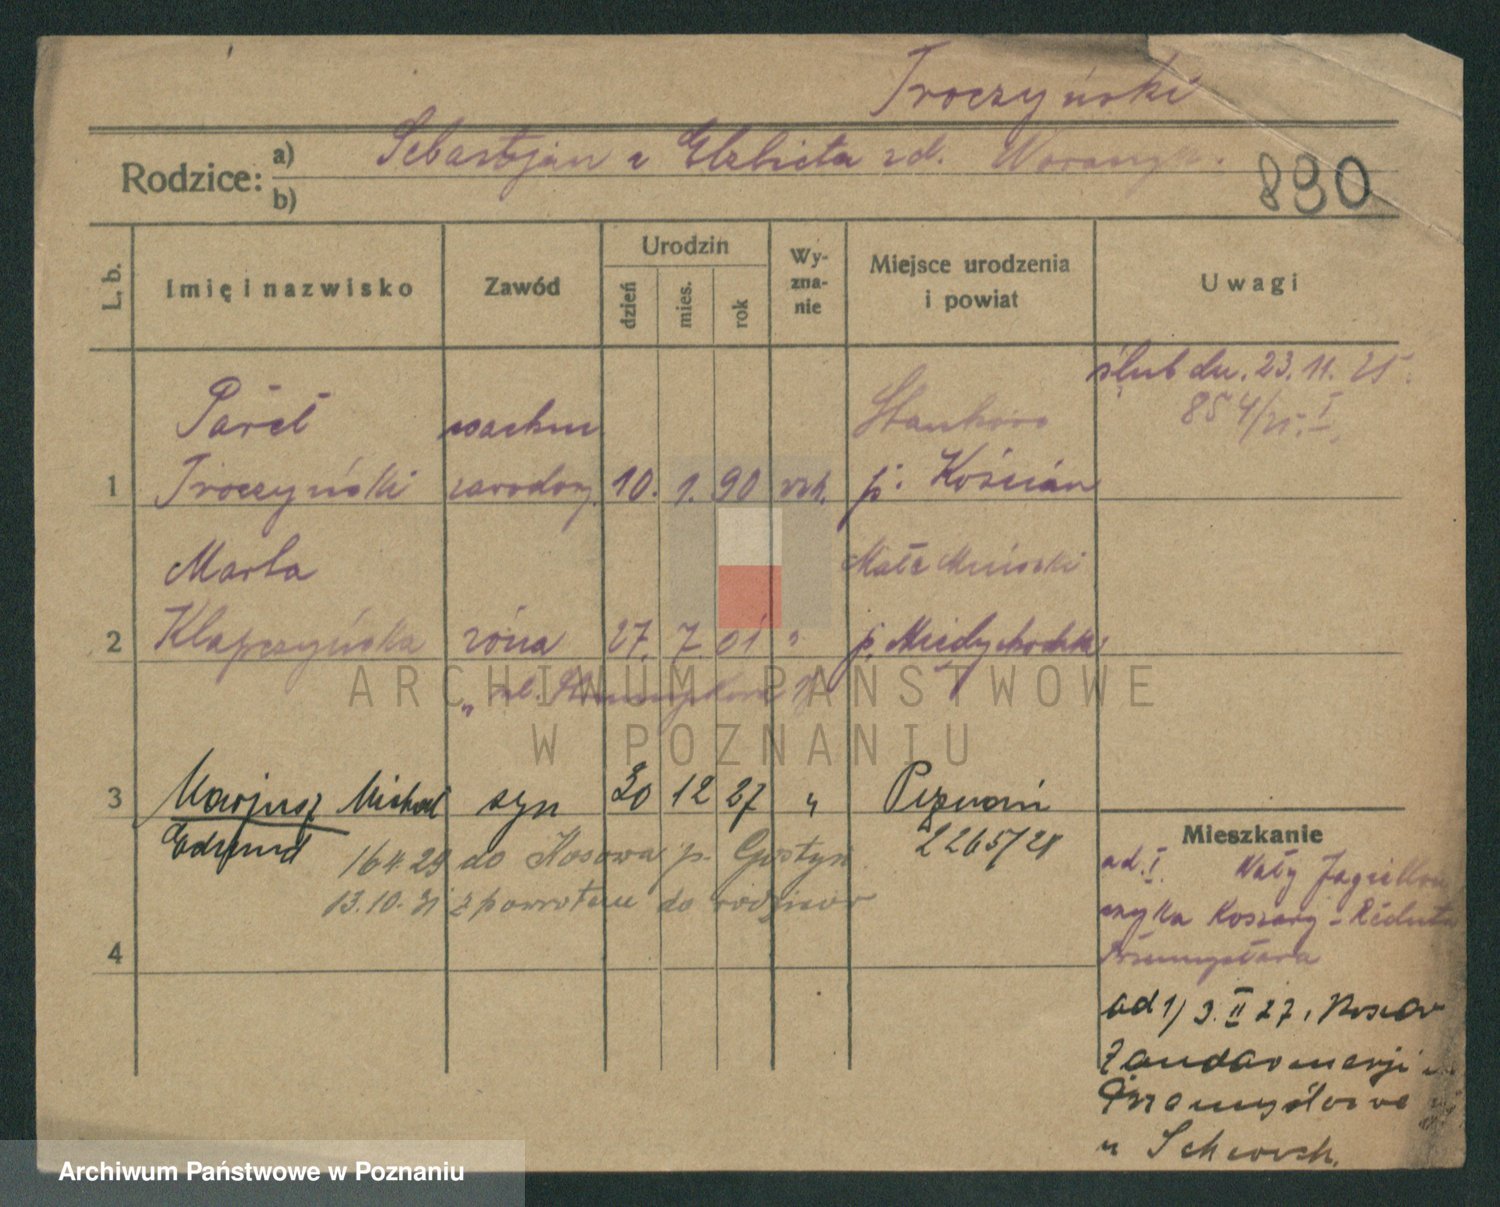 Troczyński
Rodzice: a) Sebastjan i Elżbieta zd.
b)
890
L. b. Imię i nazwisko Zawód Urodzin dzień mies. rok Wyznanie Miejsce urodzenia i powiat Uwagi
ślub dn. 23.11.25.
854/25. I.
Paweł wachm.
1 Troczyński zawodowy 10. 1. 90 rzk. p. Kościan
Marta
2 Klapczyńska żona 27. 7. 01 " p. Międzychodzki
3 Marjusz Michał syn 30 12 27 " Poznań
Edmund 2265/28
16 4 29 do Kosowa p. Gostyń
13.10.31 z powrotem do rodziców
4
Mieszkanie
ad. I. Wały Jagielloń
czyka Koszary - Reduta
Przemysława
ad 1) 3. II 27. Koszar
Żandarmerji
Przemysłowe
u
ARCHIWUM PAŃSTWOWE
W POZNANIU
Archiwum Państwowe w Poznaniu